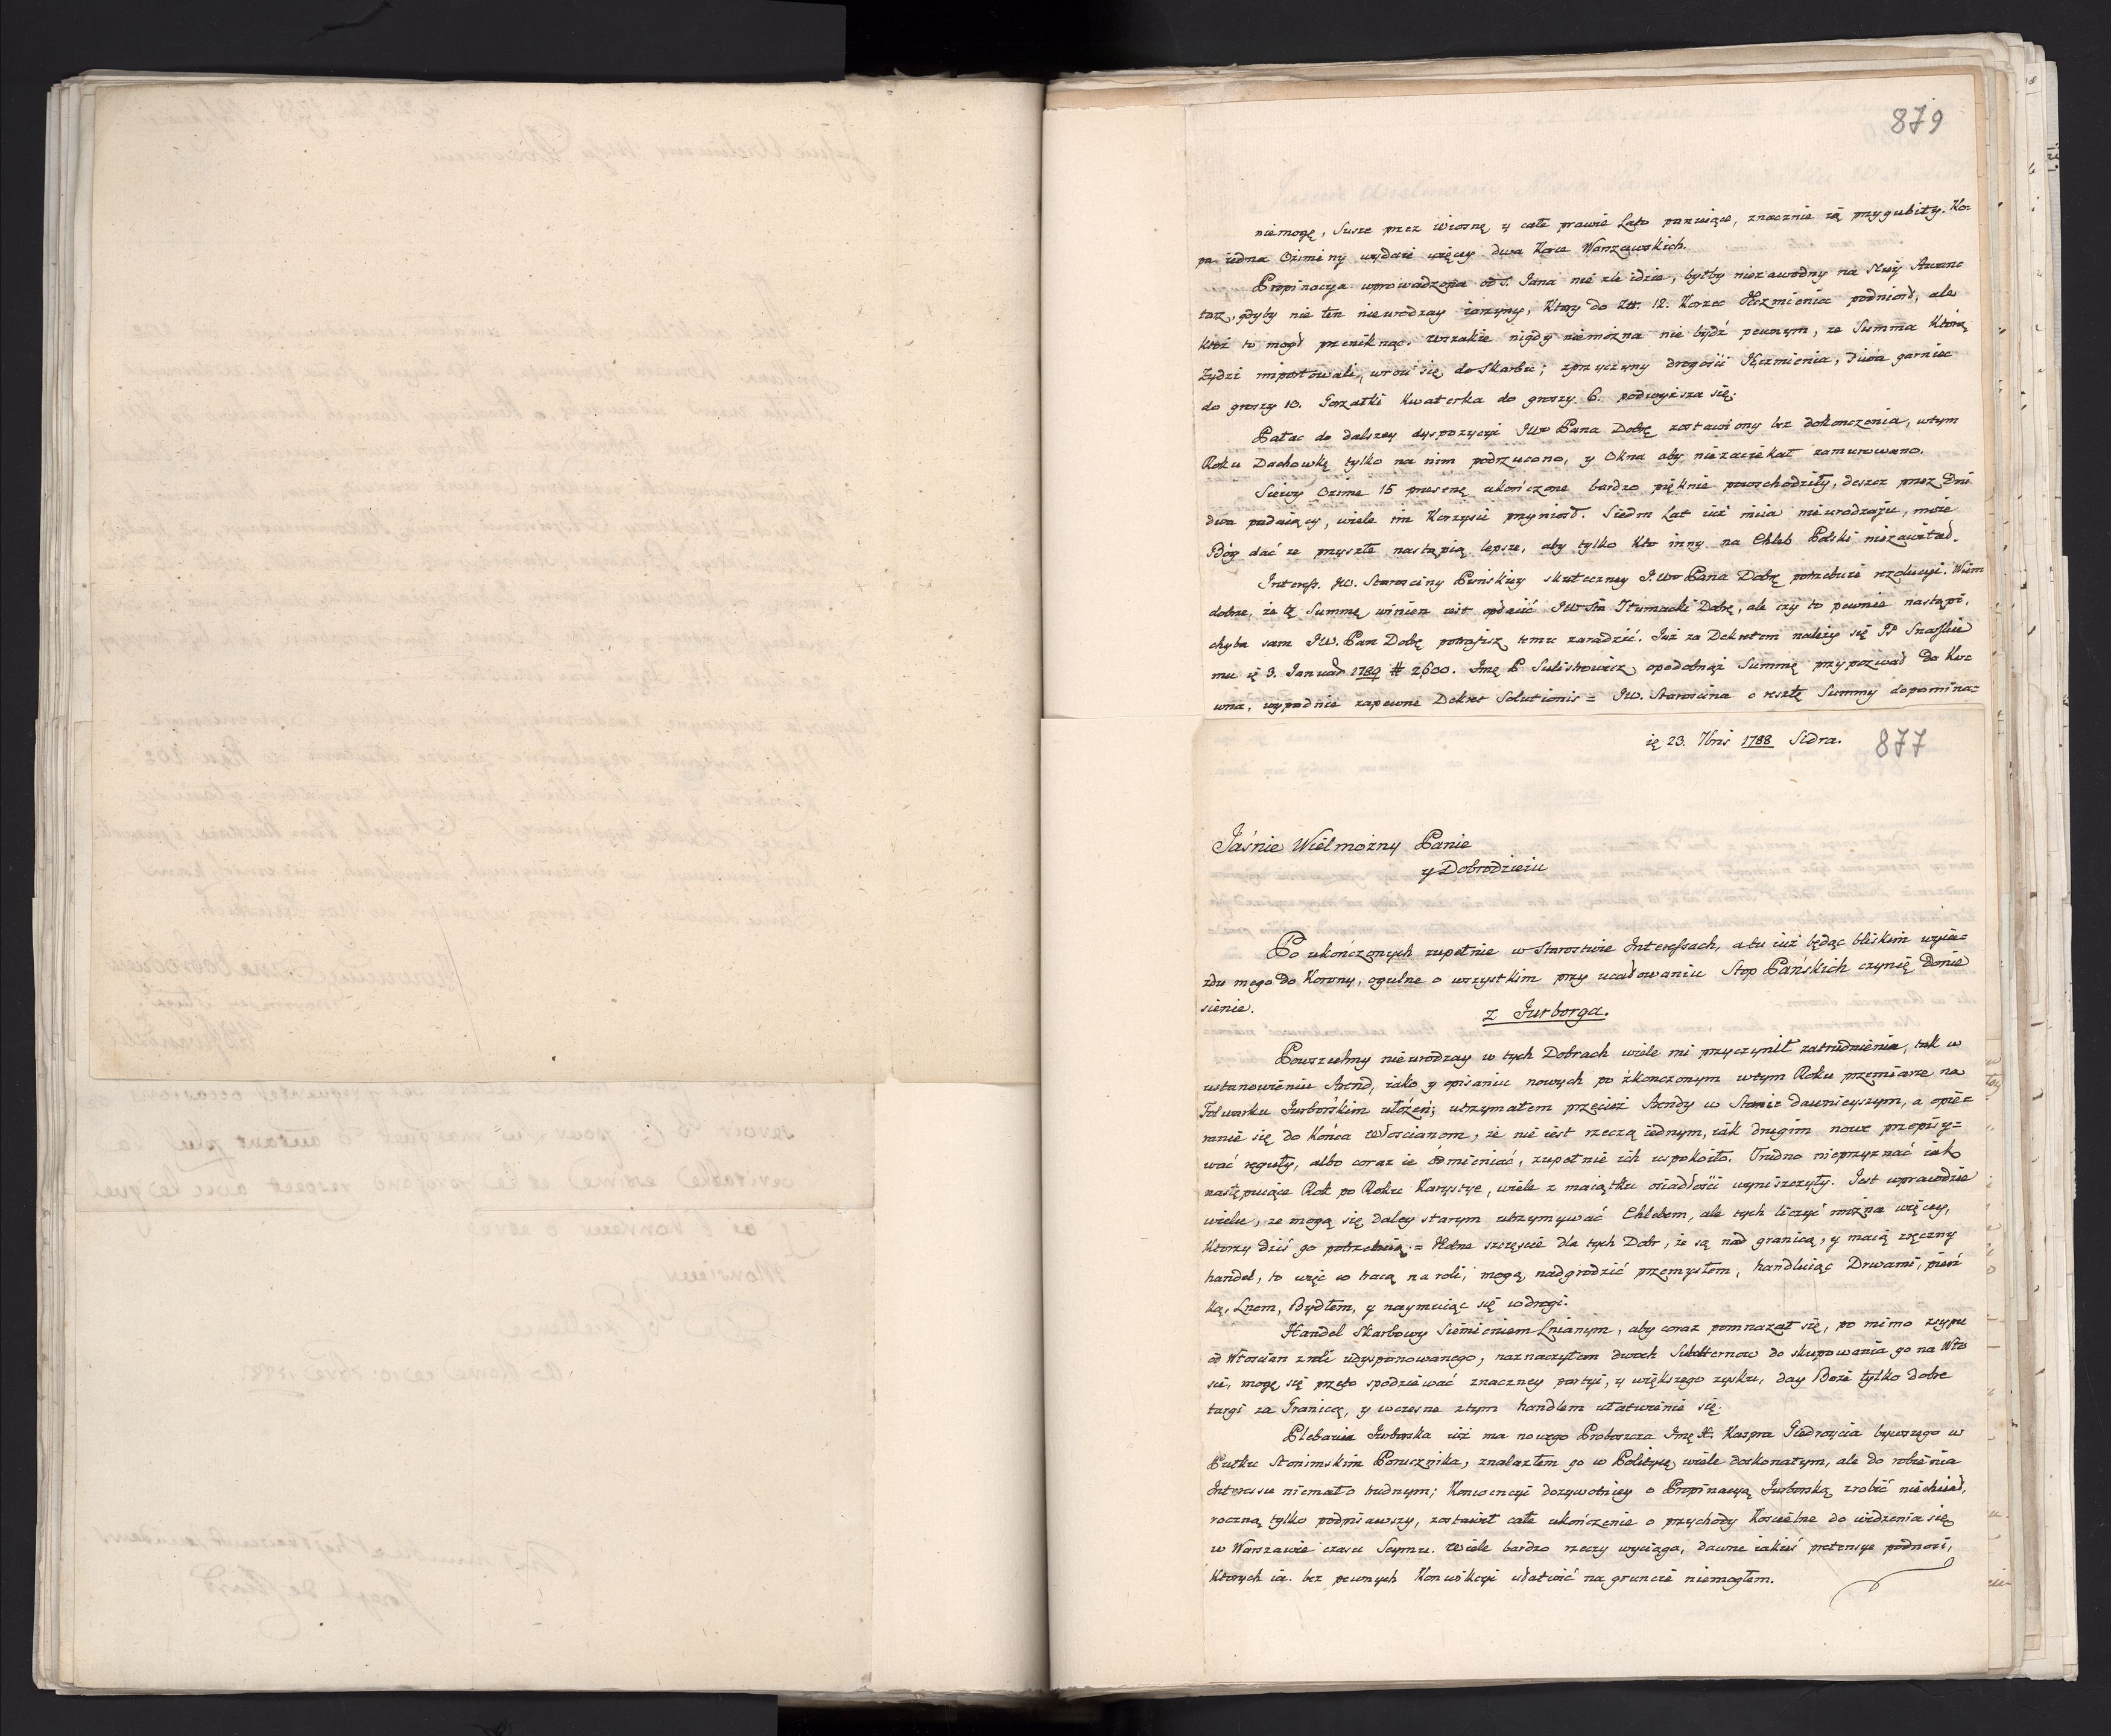 879
niemogę, Susze przez wiosnę y całe prawie Lato panuiące, znacznie ią przygubiły. Ko=
pa iedna Oziminy wydaie więcey dwa Korce Warszawskich.
Propinacya wprowadzona od S. Jana nie źle idzie, byłby niezawodny na Niey Awans
tarz, gdyby nie ten nieurodzay iarzyny, Ktory do Złt. 12. Korzec Jęczmienia podniosł, ale
ktoż to mogł przeniknąc. wszakże nigdy niemożna nie bydź pewnym, ze Summa Którą
Żydzi importowali, wroci się do Skarbu; zprzyczyny drogości Jęczmienia, Piwa garniec
do groszy 10. Gorzałki Kwaterka do groszy 6. podwyższa się.
Pałac do dalszey dyspozycyi JWo Pana Dobrę zostawiony bez dokonczenia, wtym
Roku Dachowkę tylko na nim podrzucono, y Okna aby niezaciekał zamurowano.
Siewy Ozime 15 presenę ukończone bardzo pięknie powschodziły, deszcz przez Dni
dwa padaiący, wiele im Korzyści przyniosł. Siedm Lat iuż miia nieurodzaiu, może
Bóg dać ze przyszłe nastąpią lepsze, aby tylko kto inny na Chleb Polski niezawitał.
Interess. JW. Starosciny Puńskiey skuteczney J.Wo Pana Dobrę potrzebuie rezolucyi. Wiem
dobrze, że tę Summę winien iest opłacić JWSta Tłumacki Dobrę, ale czy to pewnie nastąpi,
chyba sam JW. Pan Dobrę potrafisz temu zaradzić. Już za Dekretem należy się P. Snarskie
mu ię 3. Januar 1789 # 2600. Jmę P Sulistrowicz opodobnąż Summę przypozwał do Kow
wna, wypadnie zapewne Dekret Solutionis = JW. Starościna o resztę Summy dopomina=
ię 23. 7bris 1788 Sidra.
877
Jaśnie Wielmożny Panie
y Dobrodzieiu
Po ukończonych zupełnie w Starostwie Interessach, a tu iuż będąc bliskim wyia=
zdu mego do Korony, ogulne o wszystkim przy ucałowaniu Stop Pańskich czynię Donie
sienie.
z Jurborga.
Powszechny nieurodzay w tych Dobrach wiele mi przyczynił zatrudnienia, tak w
ustanowieniu Arend, iako y opisaniu nowych po zkonczonym wtym Roku przemiarze na
Folwarku Jurborskim ułożeń; utrzymałem przecież Arendy w Stanie dawnieyszym, a opie=
ranie się do Końca Włoscianom, że nie iest rzeczą iednym, iak drugim nowe przepisy=
wać reguły, albo coraz ie odmieniać, zupełnie ich uspokoiło. Trudno nieprzyznać iak
następuiące Rok po Roku Karystye, wiele z maiątku osiadłości wyniszczyły. Jest wprawdzie
wielu, ze mogą się daley starym utrzymywać Chlebem, ale tych liczyć można więcey,
Ktorzy dziś go potrzebuią. = Jedne szczęscie dla tych Dobr, że są nad granicą, y maią zręczny
handel, to więc co tracą na roli, mogą nadgrodzić przemysłem, handluiąc Drwami, pień
ką, Lnem, Bydłem, y naymuiąc się w drogi.
Handel Skarbowy Siemieniem Lnianym, aby coraz pomnażał się, po mimo zsypu
od Włoscian z roli wdysponowanego, naznaczyłem dwoch Subalternow do skupowania go na Wło
sci, mogę się przeto spodziewać znaczney partyi, y większego zysku, day Boże tylko dobre
targi za Granicą, y wczesne ztym handlem ułatwienie się.
Plebania Jurborska iuż ma nowego Proboszcza Jmę X. Kaspra Giedroycia bywszego w
Pułku Słonimskim Porucznika, znalazłem go w Polityce wiele doskonałym, ale do robienia
Interessu niemało trudnym; Konwencyi dożywotniey o Propinacyą Jurborską zrobić niechciał,
roczną tylko podpisawszy, zostawił całe ukończenie o przychody Koscielne do widzenia się
w Warszawie czasu Seymu. Wiele bardzo rzeczy wyciąga, dawne iakieś pretensye podnosi,
Ktorych ia. bez pewnych Konwikcyi ułatwić na gruncie niemogłem.